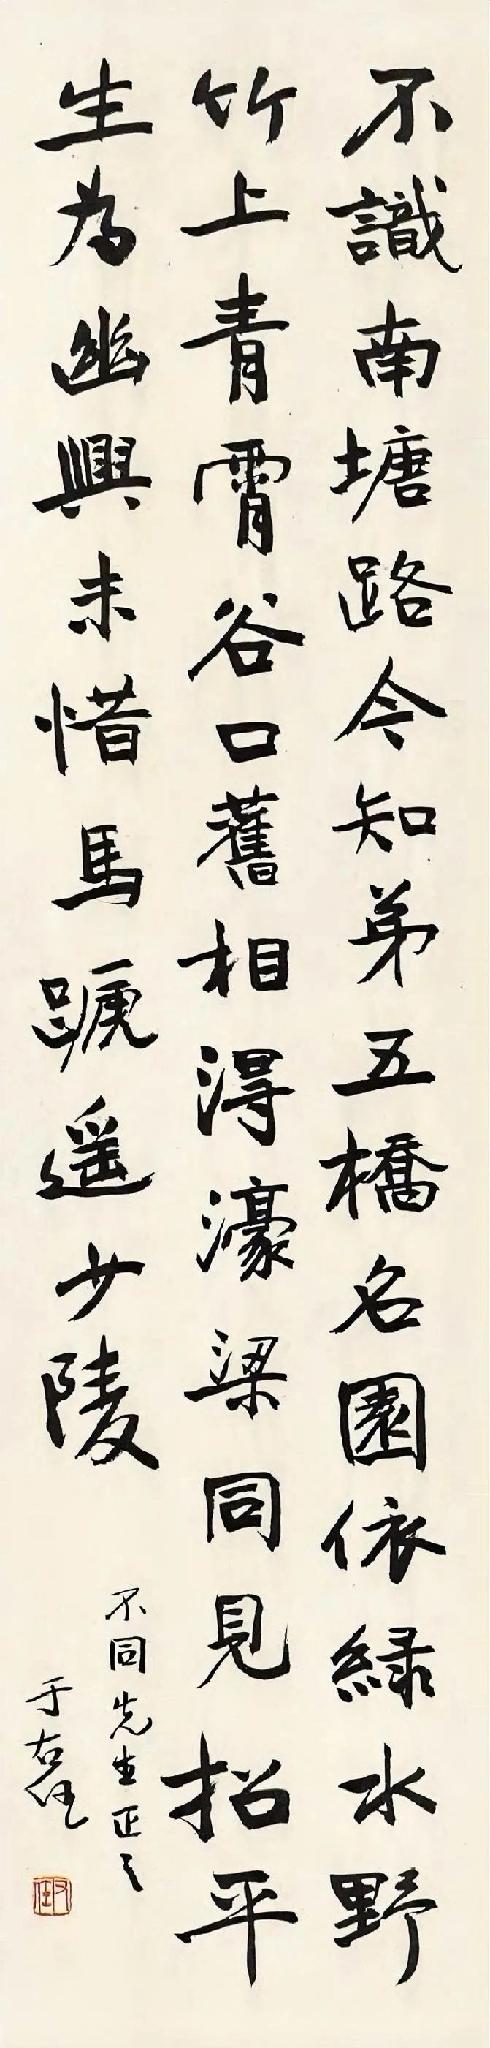 不識南塘路今知弟五橋名園依緑水野
竹上青霄谷口舊相淂濠梁同見招平
生為幽興未惜馬蹏遥少陵
不同先生正之
于右任
右任